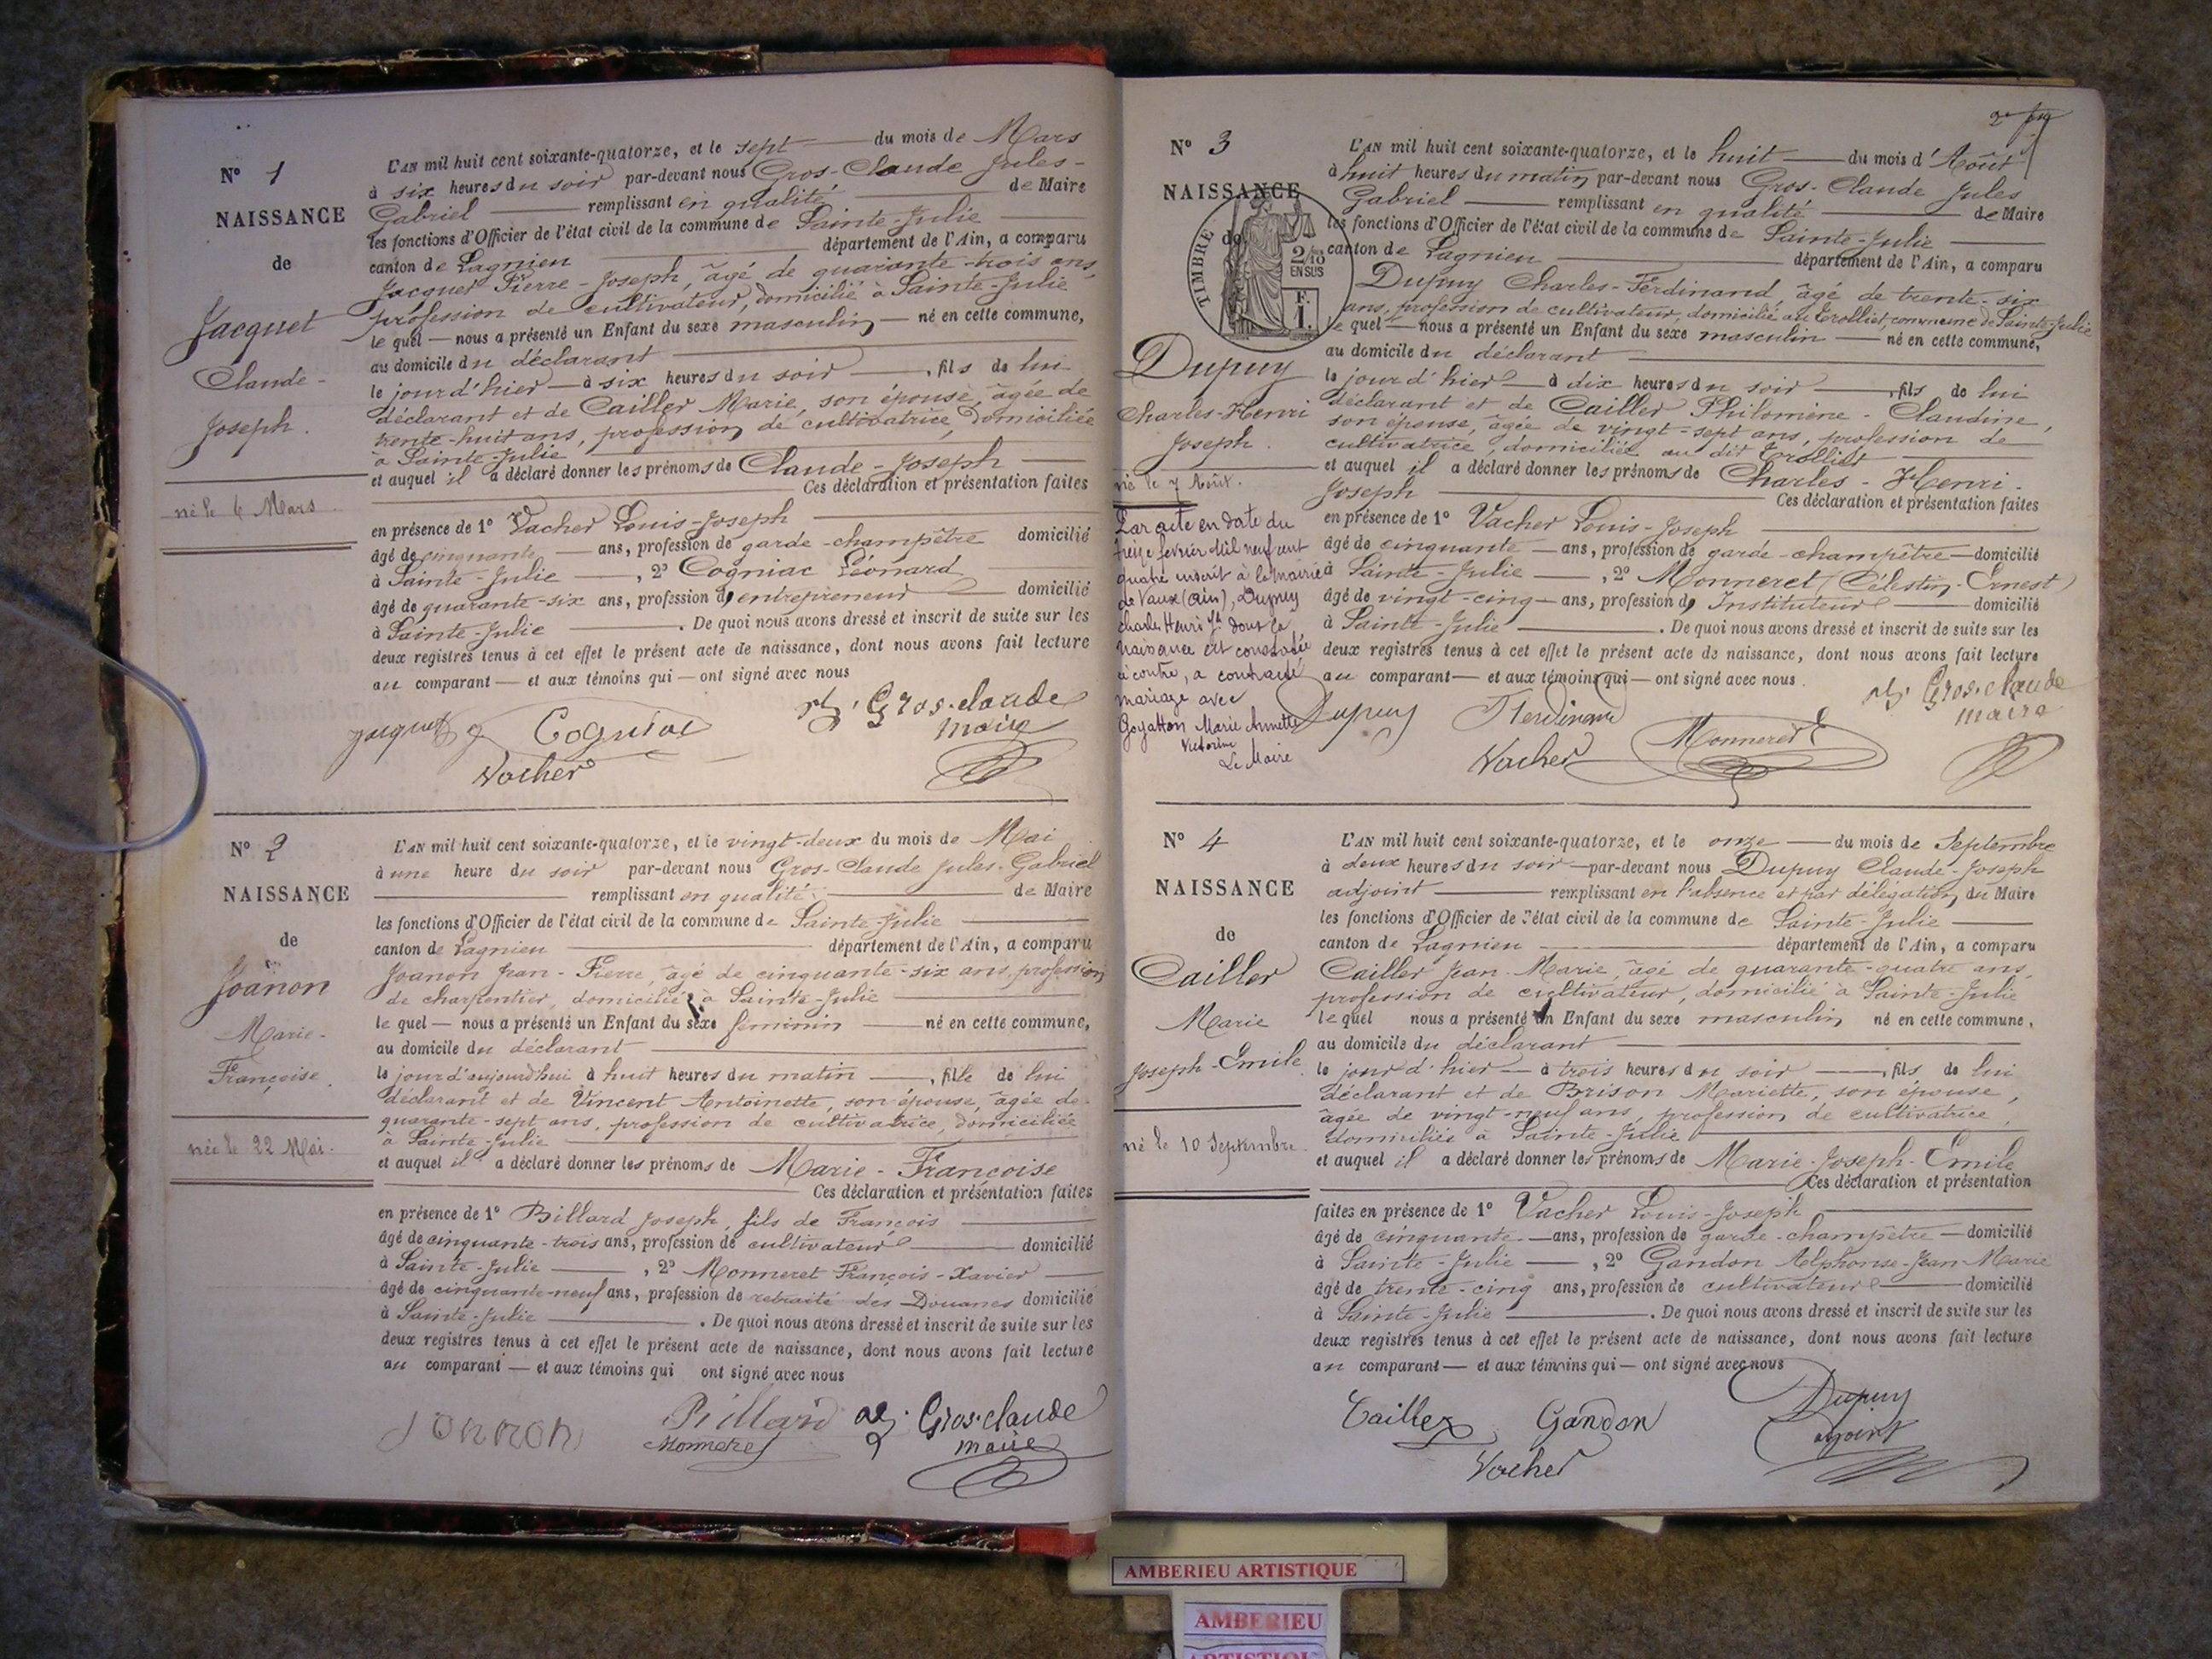 N° 1
NAISSANCE
de
Jacquet
Claude-
Joseph.
né le 6 Mars
L'AN mil huit cent soixante-quatorze, et le sept — du mois de Mars
à six heures du soir par-devant nous Gros-Claude Jules-
Gabriel — remplissant en qualité — de Maire
les fonctions d'Officier de l'état civil de la commune de Sainte-Julie
canton de Lagnieu — département de l'Ain, a comparu
Jacquet Pierre-Joseph, âgé de quarante-trois ans,
profession de cultivateur, domicilié à Sainte-Julie
le quel — nous a présenté un Enfant du sexe masculin — né en cette commune,
au domicile du déclarant
le jour d'hier — à six heures du soir —, fils de lui
déclarant et de Cailler Marie, son épouse, âgée de
trente-huit ans, profession de cultivatrice, domiciliée
à Sainte-Julie
et auquel il a déclaré donner les prénoms de Claude-Joseph
Ces déclaration et présentation faites
en présence de 1° Vacher Louis-Joseph
âgé de cinquante — ans, profession de garde-champêtre domicilié
à Sainte-Julie —, 2° Cogniac Léonard
âgé de quarante-six ans, profession d'entrepreneur domicilié
à Sainte-Julie —. De quoi nous avons dressé et inscrit de suite sur les
deux registres tenus à cet effet le présent acte de naissance, dont nous avons fait lecture
au comparant — et aux témoins qui — ont signé avec nous
Jacquet Cogniac Gros-claude
maire
Vacher
N° 2
NAISSANCE
de
Joanon
Marie-
Françoise.
née le 22 Mai.
L'AN mil huit cent soixante-quatorze, et le vingt-deux du mois de Mai
à une heure du soir par-devant nous Gros-Claude Jules-Gabriel
— remplissant en qualité — de Maire
les fonctions d'Officier de l'état civil de la commune de Sainte-Julie
canton de Lagnieu — département de l'Ain, a comparu
Joanon Jean-Pierre, âgé de cinquante-six ans, profession
de charpentier, domicilié à Sainte-Julie
le quel — nous a présenté un Enfant du sexe féminin — né en cette commune,
au domicile du déclarant
le jour d'aujourd'hui à huit heures du matin —, fille de lui
déclarant et de Vincent Antoinette, son épouse, âgée de
quarante-sept ans, profession de cultivatrice, domiciliée
à Sainte-Julie
et auquel il a déclaré donner les prénoms de Marie-Françoise
Ces déclaration et présentation faites
en présence de 1° Billard Joseph, fils de François
âgé de cinquante-trois ans, profession de cultivateur — domicilié
à Sainte-Julie —, 2° Monneret François-Xavier
âgé de cinquante-neuf ans, profession de retraité des Douanes domicilié
à Sainte-Julie —. De quoi nous avons dressé et inscrit de suite sur les
deux registres tenus à cet effet le présent acte de naissance, dont nous avons fait lecture
au comparant — et aux témoins qui ont signé avec nous
Jonnon Billard Gros-claude
Monneret maire
N° 3
NAISSANCE
de
TIMBRE
2/10
EN SUS
F.
1.
Dupuy
Charles-Henri
Joseph.
né le 7 Août.
Par acte en date du
treize février mil neuf cent
quatre inscrit à la mairie
de Vaux (Ain), Dupuy
Charles Henri Jh dont la
naissance est constatée
ci contre, a contracté
mariage avec
Goyatton Marie Annette
Victorine
Le Maire
L'AN mil huit cent soixante-quatorze, et le huit — du mois d'Août
à huit heures du matin par-devant nous Gros-Claude Jules
Gabriel — remplissant en qualité — de Maire
les fonctions d'Officier de l'état civil de la commune de Sainte-Julie
canton de Lagnieu — département de l'Ain, a comparu
Dupuy Charles-Ferdinand, âgé de trente-six
ans, profession de cultivateur, domicilié au Trolliet, commune de Sainte-Julie
le quel — nous a présenté un Enfant du sexe masculin — né en cette commune,
au domicile du déclarant
le jour d'hier — à dix heures du soir —, fils de lui
déclarant et de Cailler Philomène-Claudine,
son épouse, âgée de vingt-sept ans, profession de
cultivatrice, domiciliée au dit Trolliet
et auquel il a déclaré donner les prénoms de Charles-Henri-
Joseph — Ces déclaration et présentation faites
en présence de 1° Vacher Louis-Joseph
âgé de cinquante — ans, profession de garde-champêtre — domicilié
à Sainte-Julie —, 2° Monneret (Célestin-Ernest)
âgé de vingt-cinq — ans, profession d'Instituteur — domicilié
à Sainte-Julie —. De quoi nous avons dressé et inscrit de suite sur les
deux registres tenus à cet effet le présent acte de naissance, dont nous avons fait lecture
au comparant — et aux témoins qui — ont signé avec nous.
Dupuy Ferdinand Gros-claude
maire
Vacher Monneret E
N° 4
NAISSANCE
de
Cailler
Marie
Joseph-Emile.
né le 10 Septembre.
L'AN mil huit cent soixante-quatorze, et le onze — du mois de Septembre
à deux heures du soir — par-devant nous Dupuy Claude-Joseph
adjoint — remplissant en l'absence et par délégation du Maire
les fonctions d'Officier de l'état civil de la commune de Sainte-Julie
canton de Lagnieu — département de l'Ain, a comparu
Cailler Jean-Marie, âgé de quarante-quatre ans,
profession de cultivateur, domicilié à Sainte-Julie
le quel nous a présenté un Enfant du sexe masculin né en cette commune,
au domicile du déclarant
le jour d'hier — à trois heures du soir —, fils de lui
déclarant et de Brison Mariette, son épouse,
âgée de vingt-neuf ans, profession de cultivatrice,
domiciliée à Sainte-Julie
et auquel il a déclaré donner les prénoms de Marie-Joseph-Emile
Ces déclaration et présentation
faites en présence de 1° Vacher Louis-Joseph
âgé de cinquante — ans, profession de garde-champêtre — domicilié
à Sainte-Julie —, 2° Gandon Alphonse-Jean-Marie
âgé de trente-cinq ans, profession de cultivateur — domicilié
à Sainte-Julie —. De quoi nous avons dressé et inscrit de suite sur les
deux registres tenus à cet effet le présent acte de naissance, dont nous avons fait lecture
au comparant — et aux témoins qui — ont signé avec nous
Cailler Gandon Dupuy
adjoint
Vacher
AMBERIEU ARTISTIQUE
AMBERIEU
ARTISTIQUE